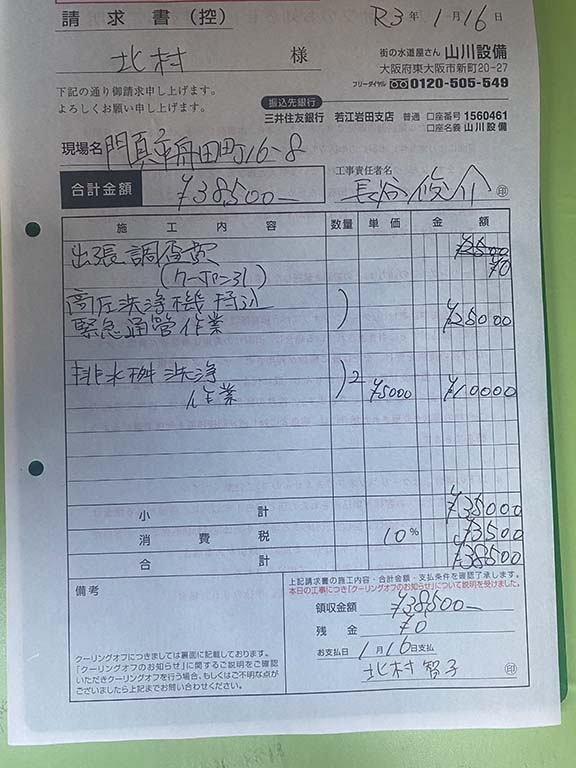 請求書(控)
R3年1月16日
北村 様
街の水道屋さん 山川設備
大阪府東大阪市新町20-27
フリーダイヤル 0120-505-549
下記の通り御請求申し上げます。
よろしくお願い申し上げます。
振込先銀行
三井住友銀行 若江岩田支店 普通 口座番号 1560461
口座名義 山川設備
現場名 門真市舟田町16-8
合計金額 ¥38500-
工事責任者名 長谷 俊介 印
施工内容 数量 単価 金額
出張調査費 ¥2500
(クーポン引) ¥0
高圧洗浄機 持込
緊急通管作業 ¥25000
排水桝洗浄 2 ¥5000 ¥10000
作業
小計 ¥35000
消費税 10% ¥3500
合計 ¥38500
備考
上記請求書の施工内容・合計金額・支払条件を確認了承します。
本日の工事につき「クーリングオフのお知らせ」について説明を受けました。
領収金額 ¥38500-
残金 ¥0
お支払日 1月16日支払
北村 智子 印
クーリングオフにつきましては裏面に記載しております。
「クーリングオフのお知らせ」に関するご説明をご確認
いただきクーリングオフを行う場合、もしくはご不明な点が
ございましたら上記までお問い合わせください。